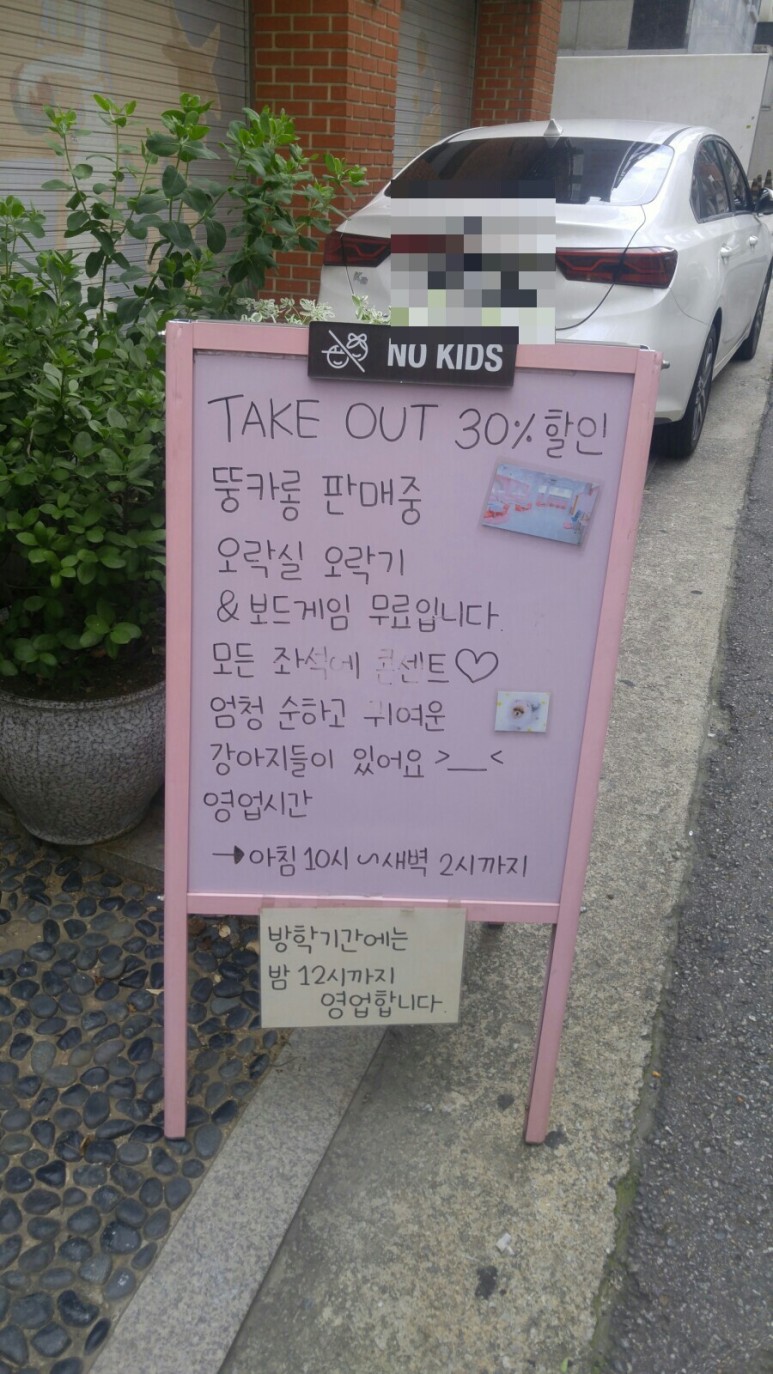 NO KIDS
TAKE OUT 30% 할인
뚱카롱 판매중
오락실 오락기
&보드게임 무료입니다.
모든 좌석에 콘센트♡
엄청 순하고 귀여운
강아지들이 있어요 >__<
영업시간
→아침 10시~새벽 2시까지
방학기간에는
밤 12시까지
영업합니다.
K3